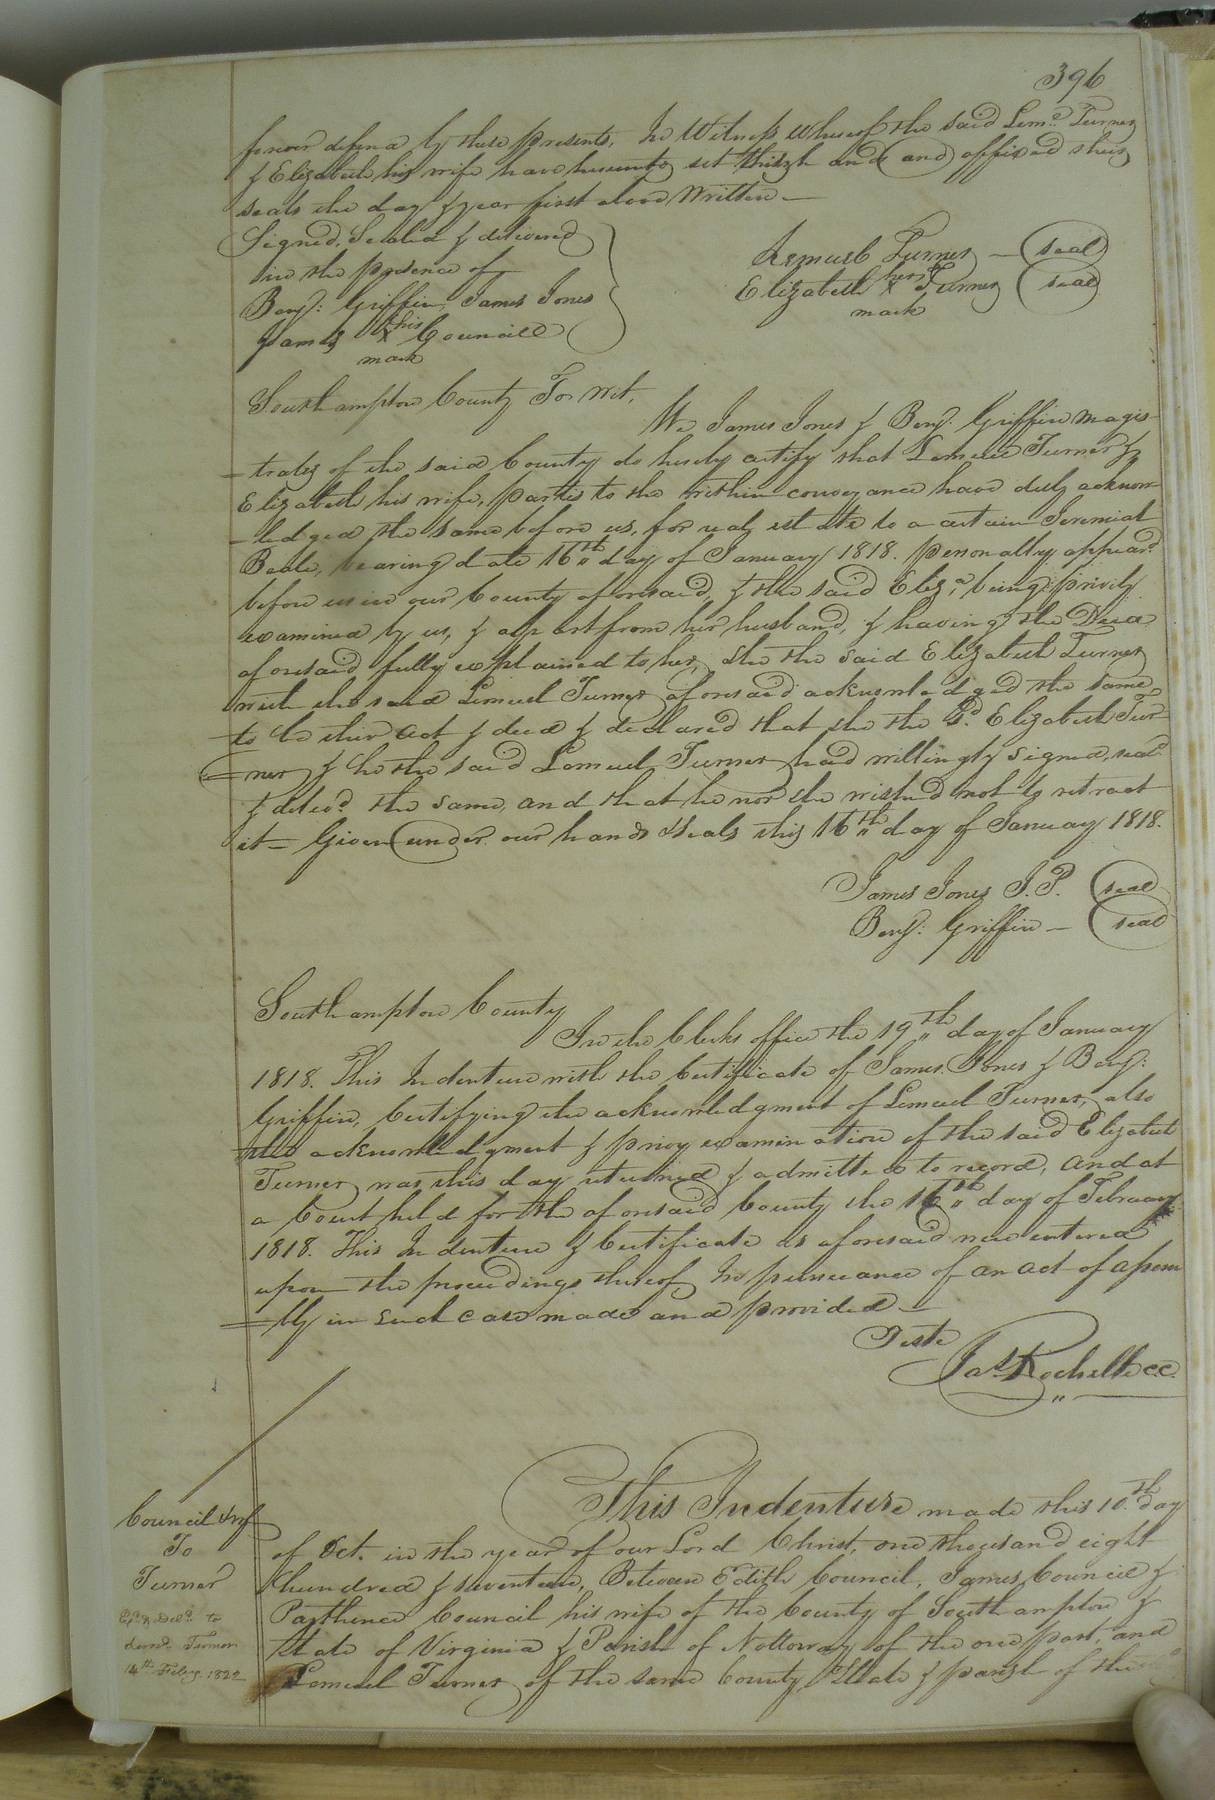 396
forever defend by these presents, In Witness whereof the said Lem.l Turner
& Elizabeth his wife have hereunto set their h and (and) affixed their
seals the day & year first above Written —
Signed, Sealed & delivered
in the presence of
Benj: Griffin, James Jones
James his X mark Council
Lemuel Turner — seal
Elizabeth her X mark Turner seal
Southampton County To Wit,
We James Jones & Benj: Griffin magis-
-trates of the said County do hereby certify that Lemuel Turner &
Elizabeth his wife, parties to the within conveyance have duly acknow-
-ledged the same before us, for realy estate to a certain Jeremiah
Beale, bearing date 16th day of January 1818. personally appear.d
before us in our County aforesaid, & the said Eliz.a being privily
examined by us, & apart from her husband, & having the Deed
aforesaid fully explained to her, she the said Elizabeth Turner
with the said Lemuel Turner aforesaid acknowledged the same
to be their act & deed & declared that she the s.d Elizabeth Tur-
-ner & he the said Lemuel Turner had willingly signed, seal.d
& deliv.d the same, and that he nor she wished not to retract
it — Given under our hands & seals this 16th day of January 1818.
James Jones J.P. seal
Benj: Griffin — seal
Southampton County
In the Clerks office the 19th day of January
1818. This Indenture with the Certificate of James Jones & Benj:
Griffin, Certifying the acknowledgment of Lemuel Turner, also
the acknowledgment & privy examination of the said Elizabeth
Turner was this day returned & admitted to record, and at
a Court held for the aforesaid County the 16th day of February
1818. This Indenture & Certificate as aforesaid were entered
upon the proceedings thereof In pursuance of an act of assem
-bly in such case made and provided —
Teste
Ja.s Rochelle C.C.
This Indenture made this 10.th day
of Oct. in the year of our Lord Christ, one thousand eight
hundred & seventeen, Between Edith Council, James Council &
Parthenea Council his wife of the County of Southampton &
state of Virginia & Parish of Nottoway of the one part, and
Lemuel Turner of the same County, State & parish of the
Council &wf
To
Turner
Ex.d & Del.d to
Lem.l Turner
14th Feby. 1822